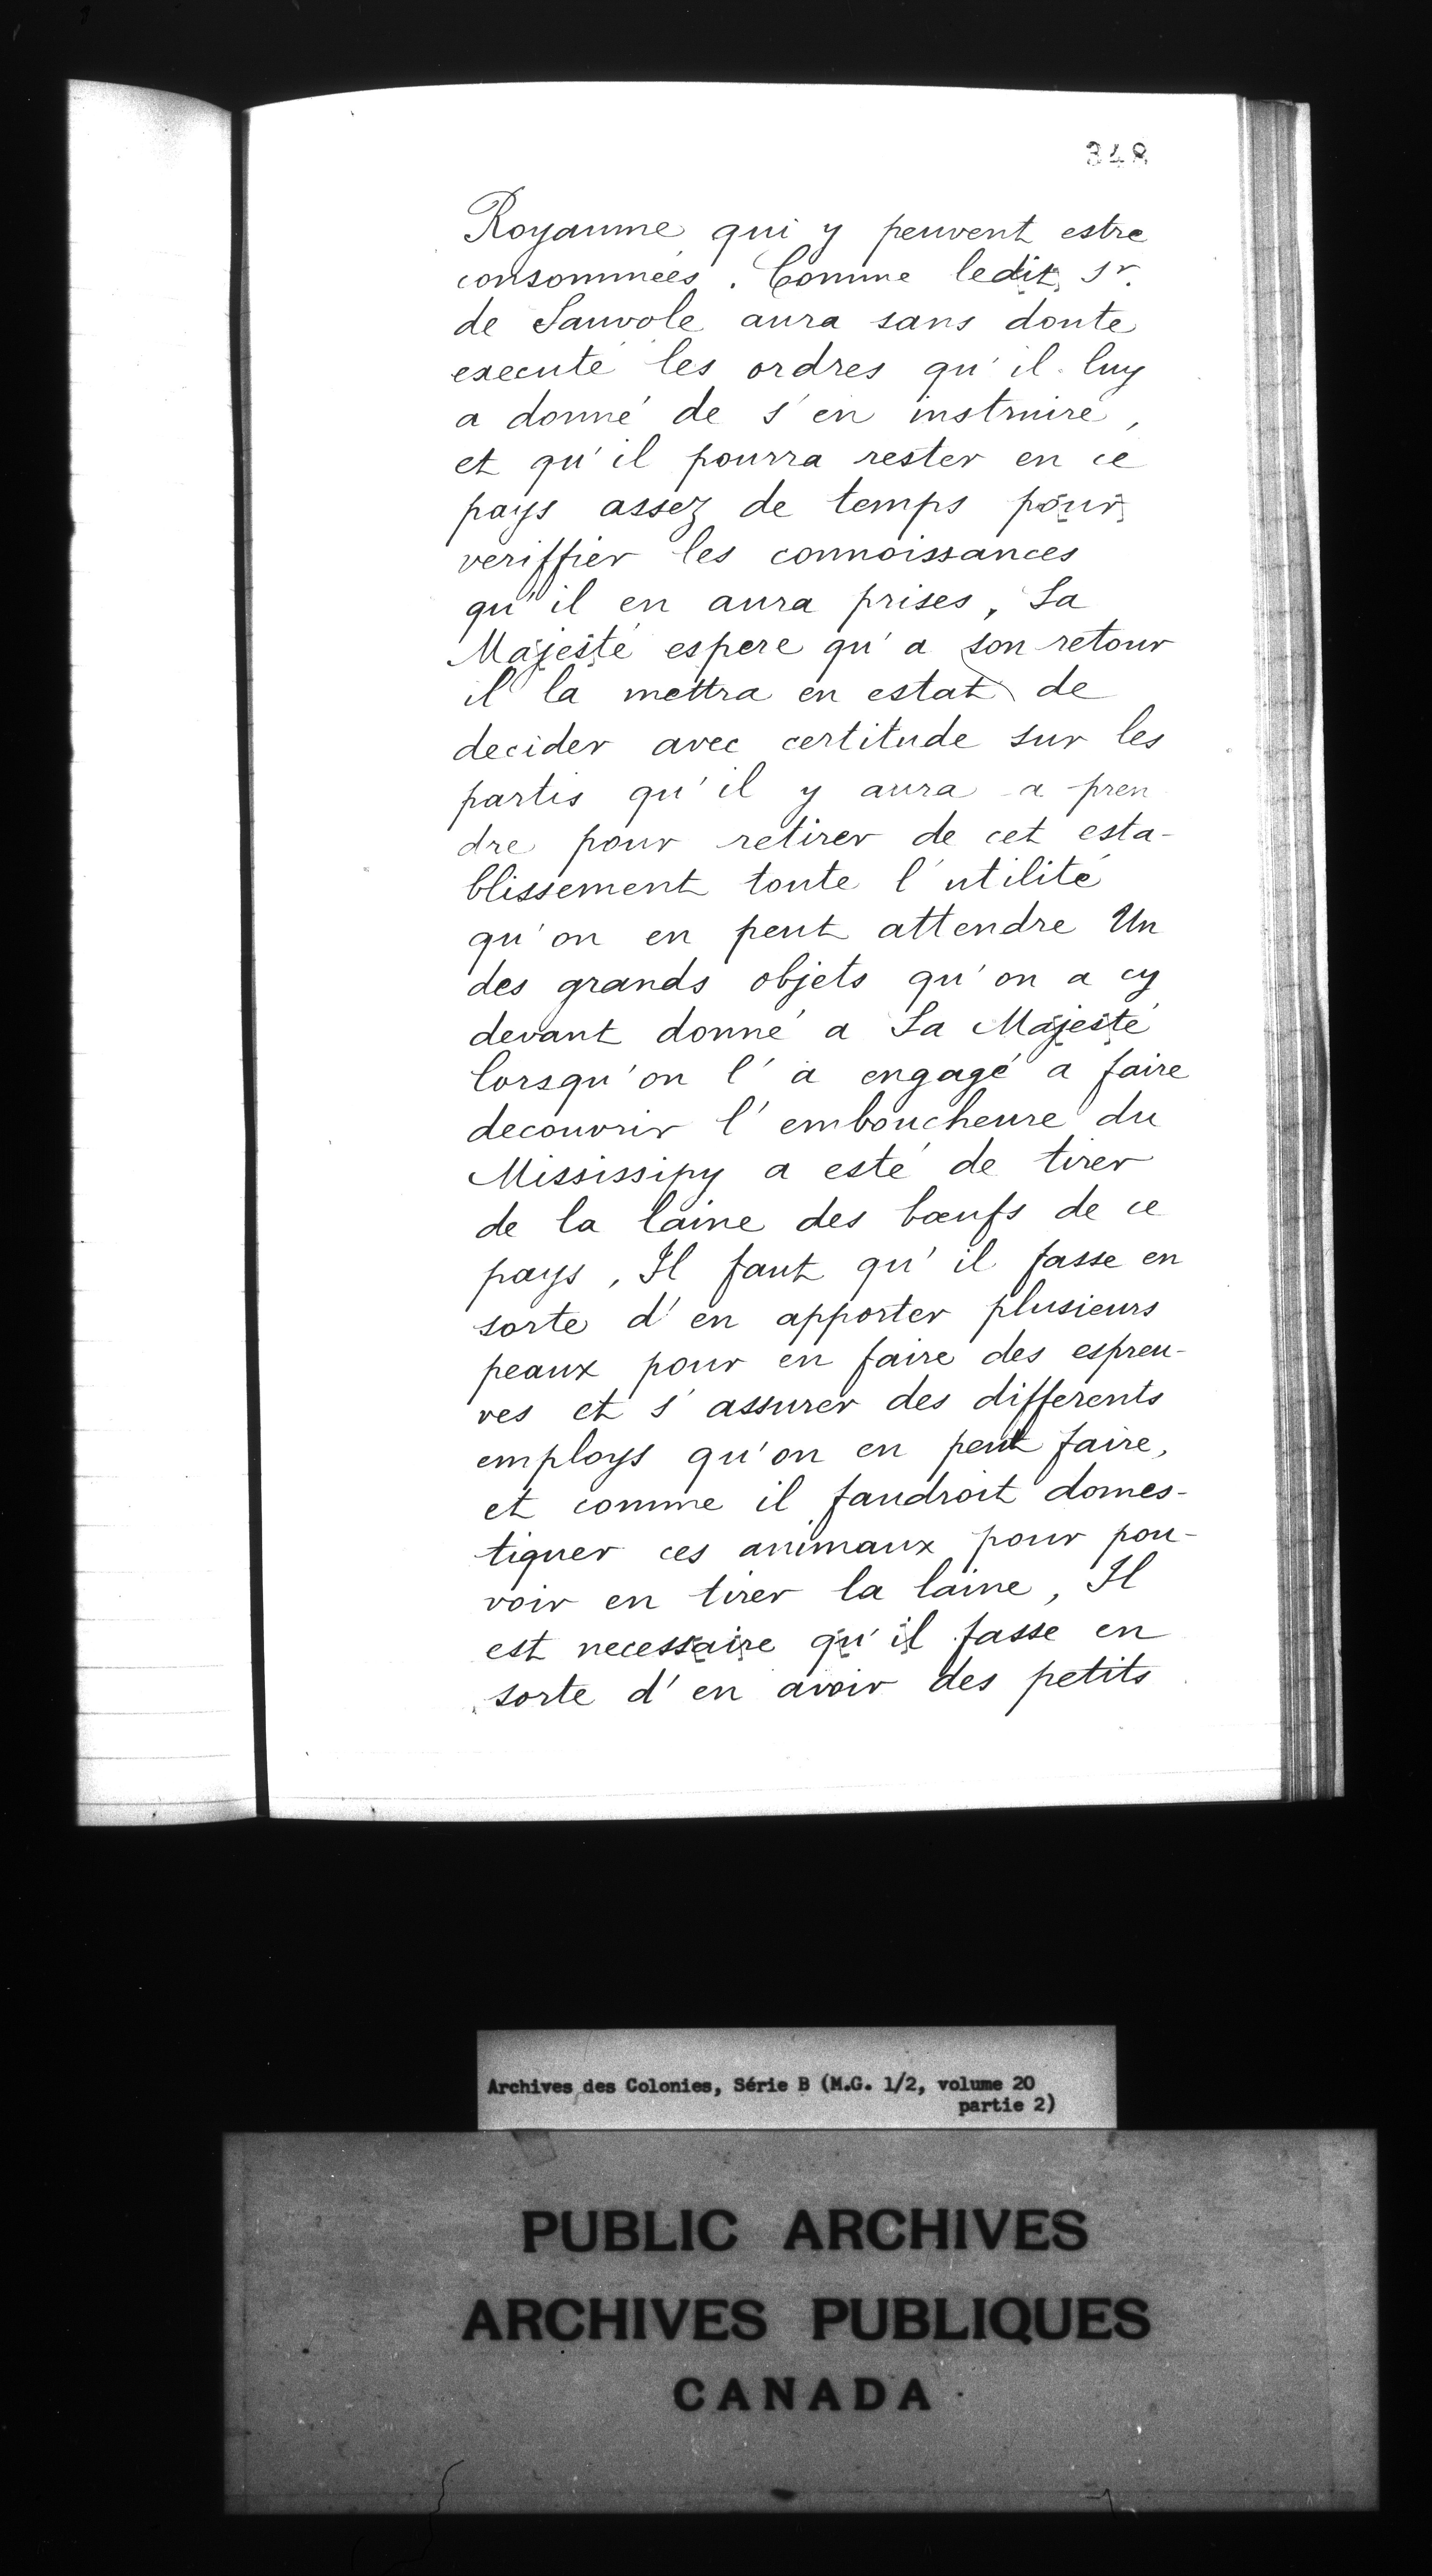 348
Royaume qui y peuvent estre
consommées. Comme ledit Sr.
de Sauvole aura sans doute
executé les ordres qu'il luy
a donné de s'en instruire,
et qu'il pourra rester en ce
pays assez de temps pour
veriffier les connoissances
qu'il en aura prises, Sa
Majesté espere qu'a son retour
il la mettra en estat de
decider avec certitude sur les
partis qu'il y aura a pren
dre pour retirer de cet esta-
blissement toute l'utilité
qu'on en peut attendre Un
des grands objets qu'on a cy
devant donné a Sa Majesté
lorsqu'on l'a engagé a faire
decouvrir l'emboucheure du
Mississipy a esté de tirer
de la laine des bœufs de ce
pays, Il faut qu'il fasse en
sorte d'en apporter plusieurs
peaux pour en faire des espreu-
ves et s'assurer des differents
employs qu'on en peut faire,
et comme il faudroit domes-
tiquer ces animaux pour pou-
voir en tirer la laine, Il
est necessaire qu'il fasse en
sorte d'en avoir des petits
Archives des Colonies, Série B (M.G. 1/2, volume 20
partie 2)
PUBLIC ARCHIVES
ARCHIVES PUBLIQUES
CANADA